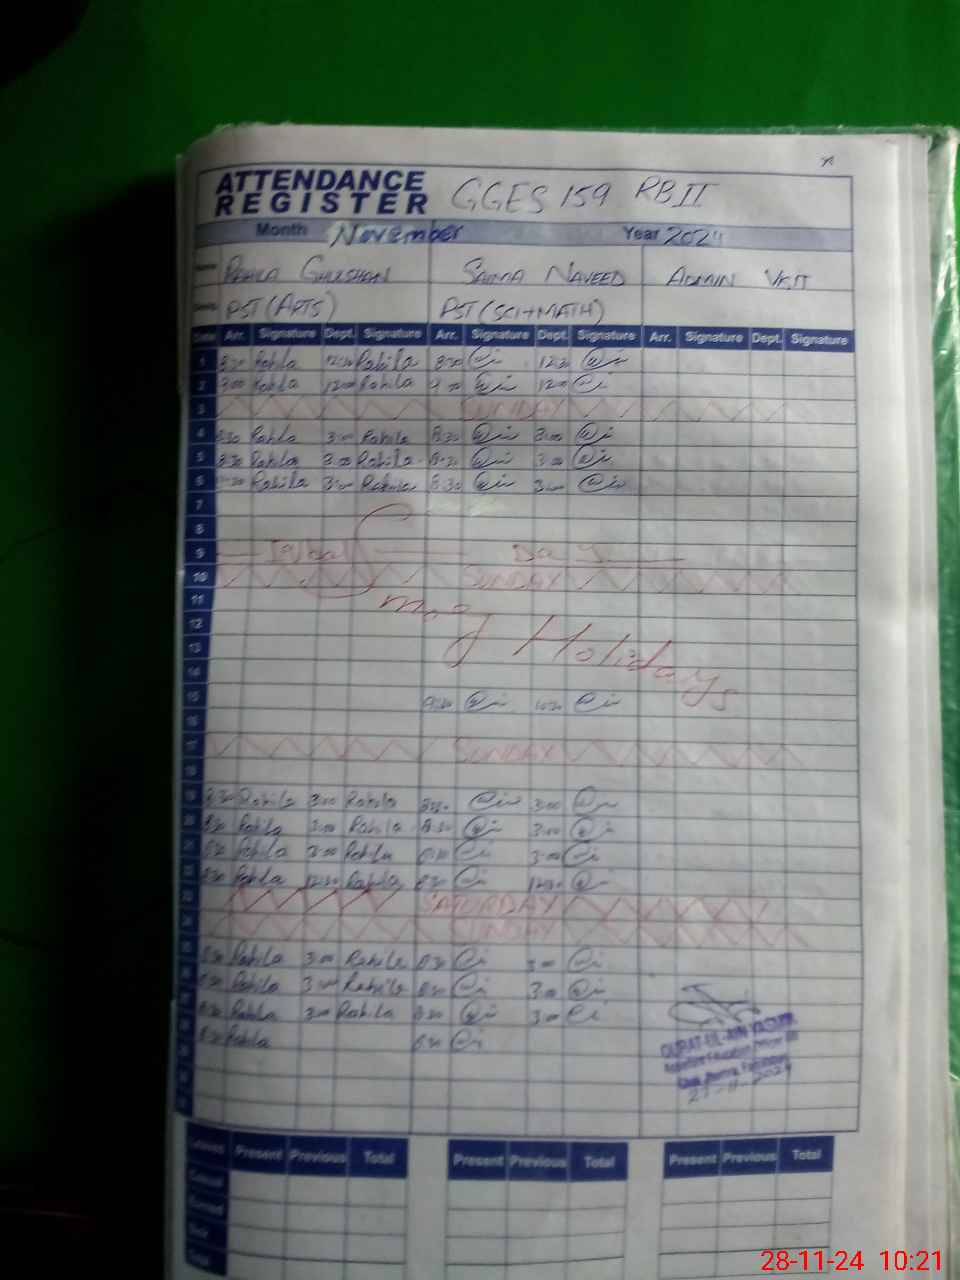 ATTENDANCE REGISTER GGES 159 RB II
Month November Year 2024
Name Rahila Ghulshan Saima Naveed Admin Visit
PST (ARTS) PST (SCI+MATH)
Date Arr. Signature Dept. Signature Arr. Signature Dept. Signature Arr. Signature Dept. Signature
1 8:30 Rahila 12:30 Rahila 8:30 12:30
2 9:00 Rahila 12:00 Rahila 9:00 12:00
3 SUNDAY
4 8:30 Rahila 3:00 Rahila 8:30 3:00
5 8:30 Rahila 3:00 Rahila 8:30 3:00
6 8:30 Rahila 3:00 Rahila 8:30 3:00
7
8
9 Iqbal Day
10 SUNDAY
11 Smog Holidays
12
13
14
15 9:30 10:30
16
17 SUNDAY
18
19 8:30 Rahila 3:00 Rahila 8:30 3:00
20 8:30 Rahila 3:00 Rahila 8:30 3:00
21 8:30 Rahila 3:00 Rahila 8:30 3:00
22 8:30 Rahila 12:30 Rahila 8:30 12:30
23 SATURDAY
24 SUNDAY
25 8:30 Rahila 3:00 Rahila 8:30 3:00
26 8:30 Rahila 3:00 Rahila 8:30 3:00
27 8:30 Rahila 3:00 Rahila 8:30 3:00
28 8:30 Rahila 8:30
QURAT-UL-AIN
Assistant Education Officer
Leaves Present Previous Total Present Previous Total Present Previous Total
Casual
Earned
Sick
Total
28-11-24 10:21